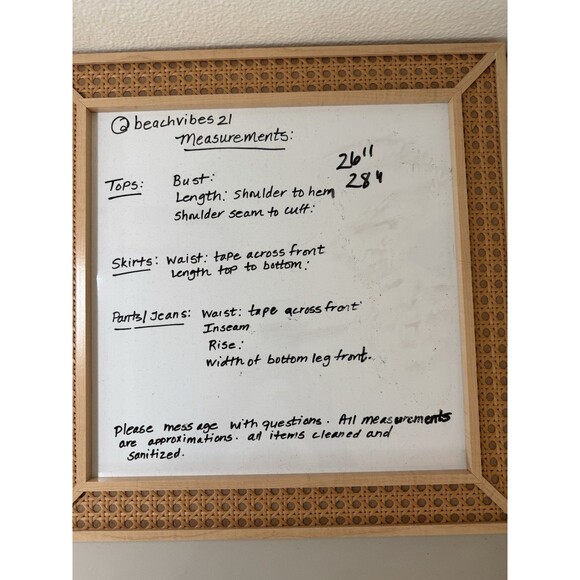 @beachvibes21
Measurements:
26"
28"
Tops: Bust:
Length: Shoulder to hem
Shoulder seam to cuff:
Skirts: Waist: tape across front
Length top to bottom:
Pants/Jeans: Waist: tape across front
Inseam
Rise:
Width of bottom leg front.
Please message with questions. All measurements
are approximations. all items cleaned and
sanitized.